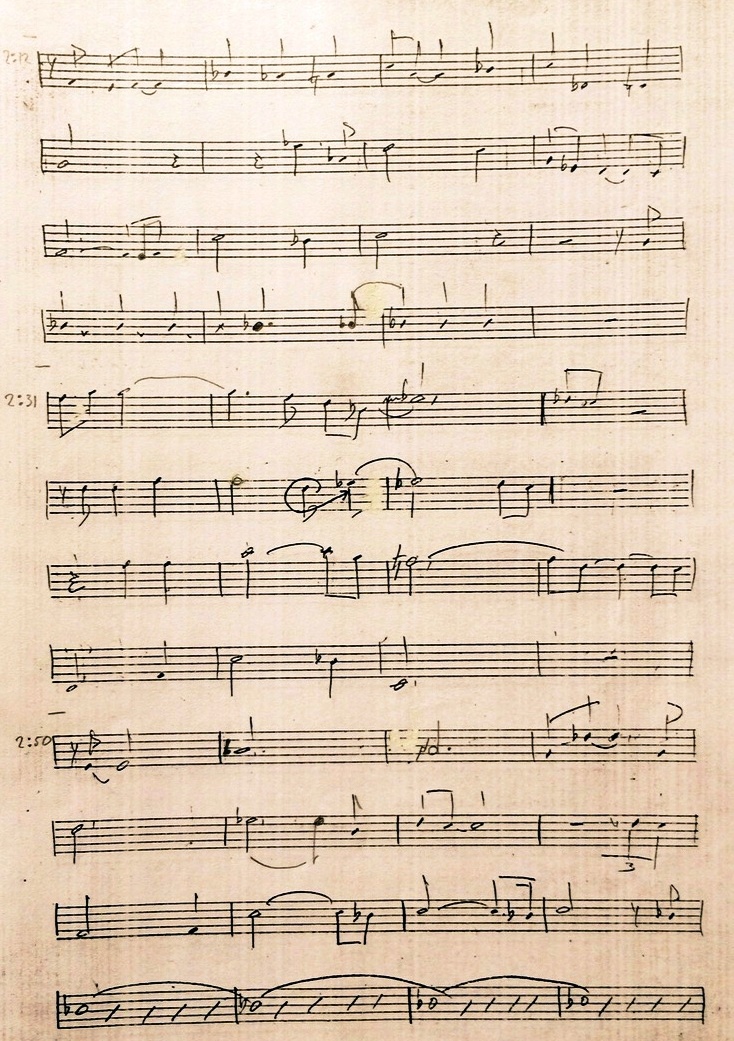 2:12
2:31
2:50
3